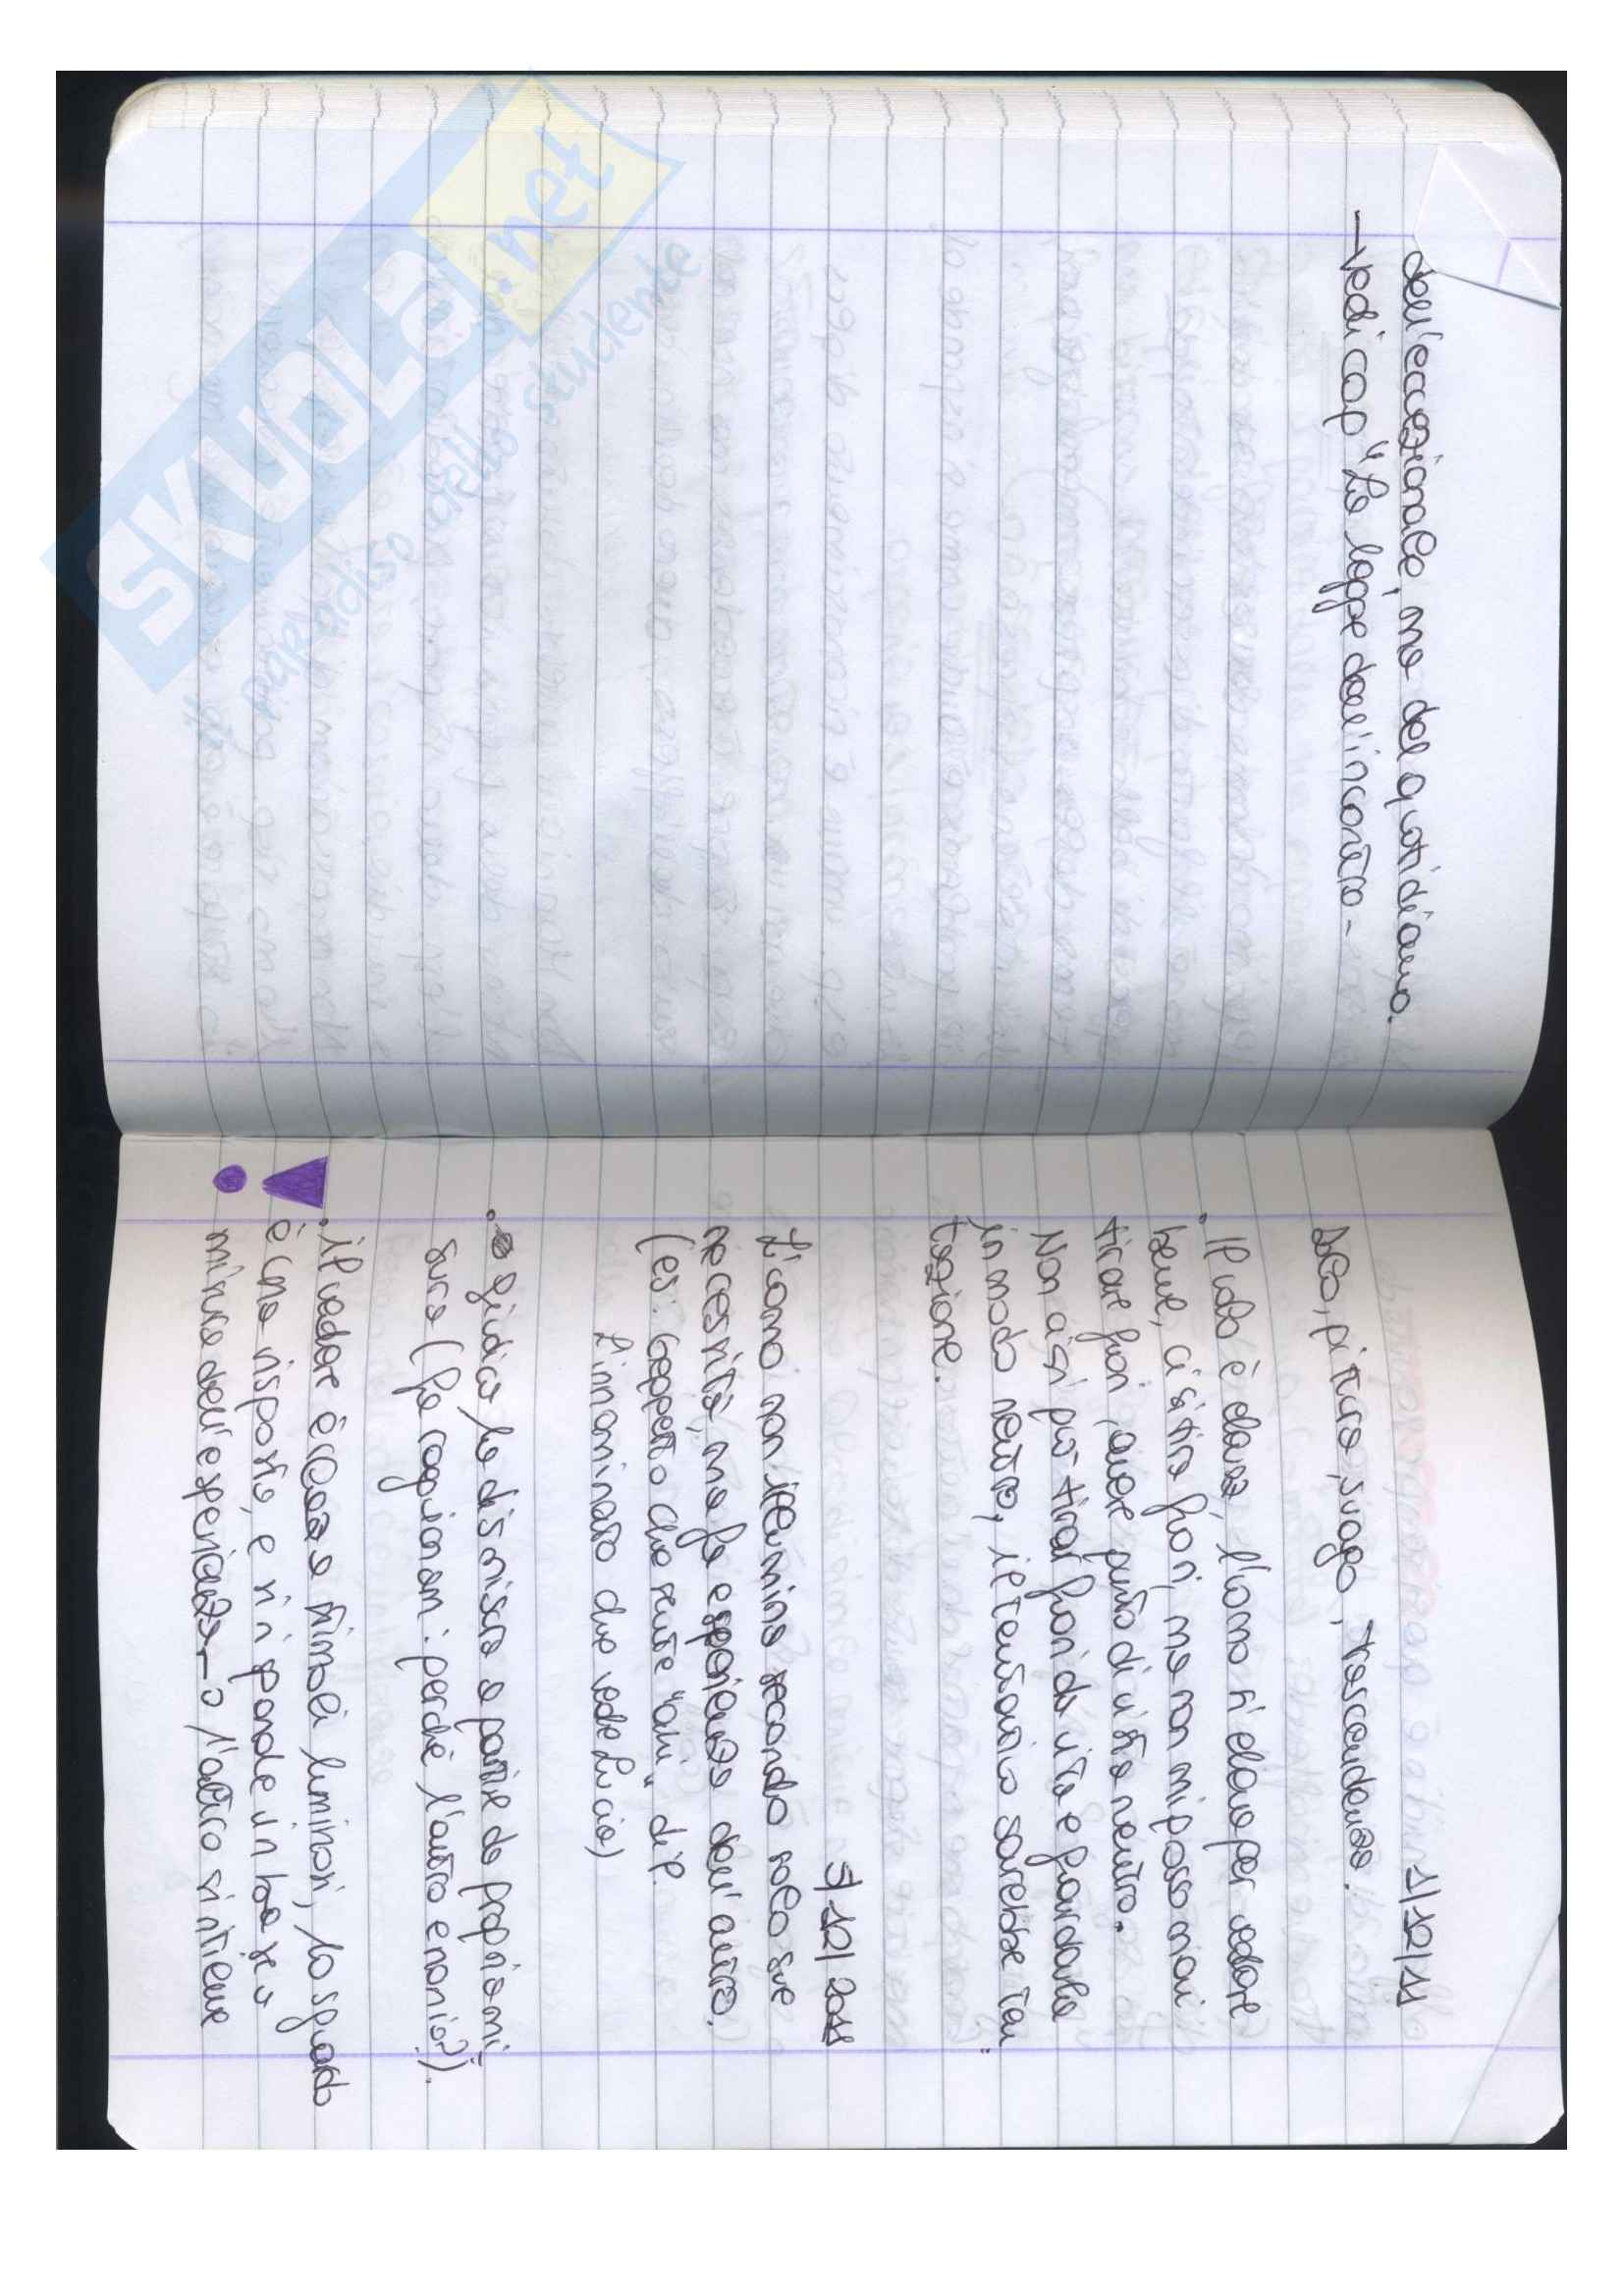 dell'eccezionale, ma del quotidiano.
→ vedi cap "La legge dell'incontro -
1/12/11
pittura, svago, trascendenza.
• Il velo è dava, l'uomo s'eleva per vedere
bene, ci si tira fuori, ma non mi posso mai
tirare fuori, avere punto di vista neutro.
Non ci si può tirar fuori da vita e guardarla
in modo neutro, il tentativo sarebbe ten-
tazione.
5/12/2011
L'uomo non illumina secondo solo sue
necessità, ma fa esperienza dell'altro.
(es: Geppetto che sente "ahi" di P.
L'innominato che vede Lucia)
• giudico la dismisura a partire da propria mi-
sura (fa ragionam: perché l'altro e non io?).
• il vedere è legato a stimoli luminosi, lo sguardo
è una risposta, e si risponde in base a
misura dell'esperienza → l'altro si ritiene
SKUOLa.net
il paradiso dello studente